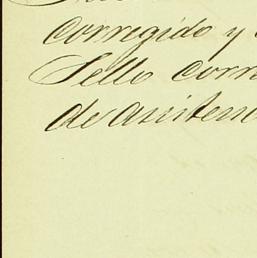 corregido y
Sello corre
de asisten